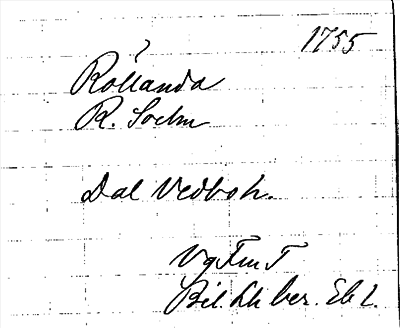 1755
?
Röllanda
R. Socken
Dal Vedboh.
Vg Fm T
Bil till ber. Eb 1.